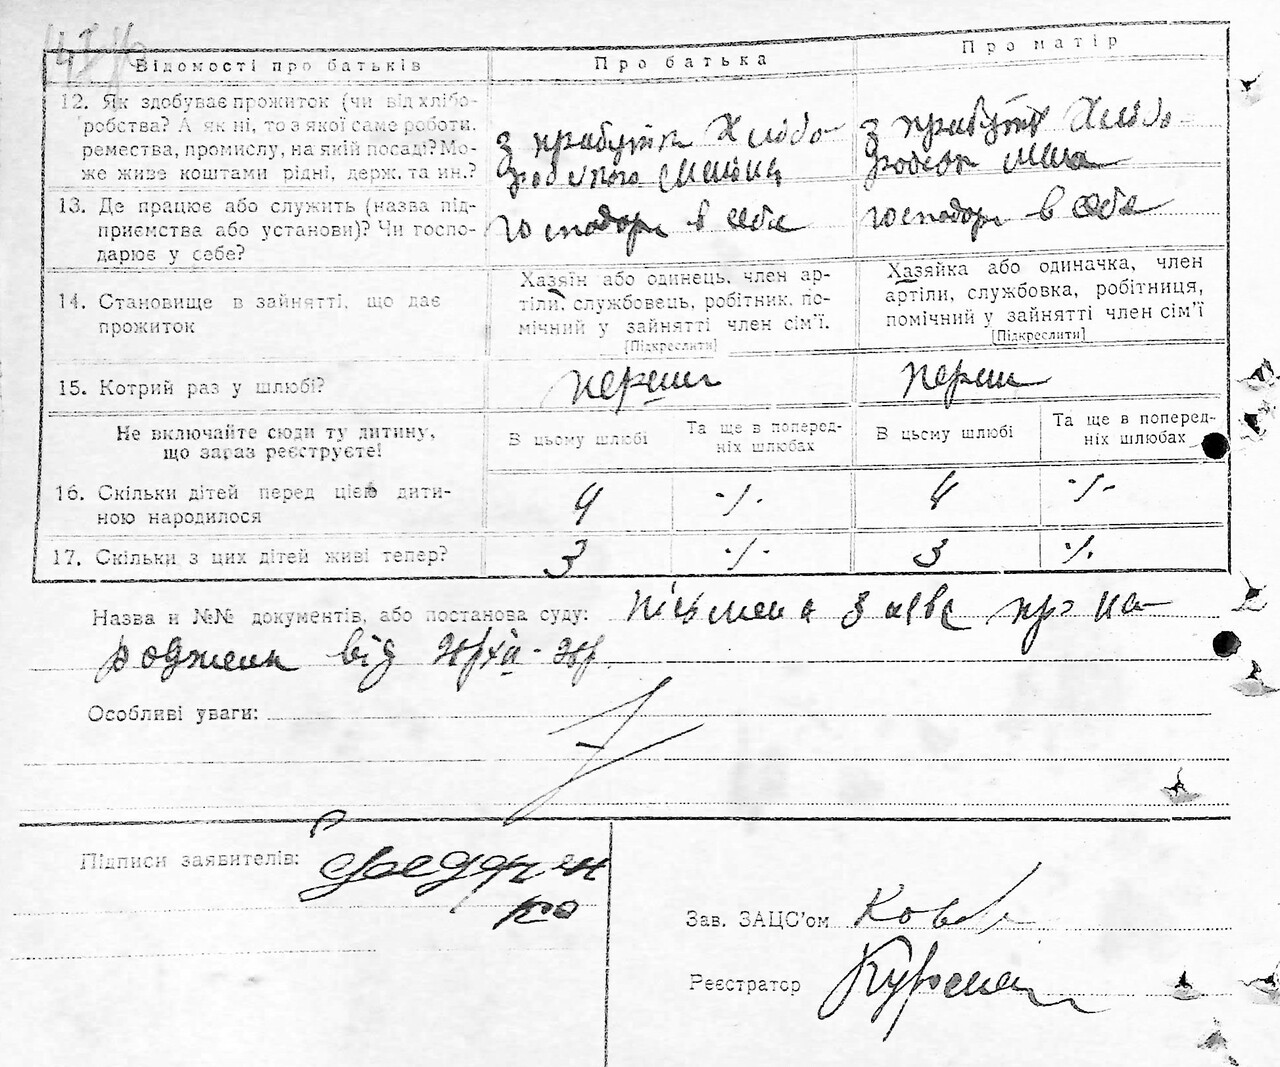 Відомості про батьків
Про батька
Про матір
12. Як здобуває прожиток (чи від хлібо-
робства? А як ні, то з якої саме роботи,
ремества, промислу, на якій посаді? Мо-
же живе коштами рідні, держ. та ин.?
з прабутків Хлібо
з прабутків Хлібо
13. Де працює або служить (назва під-
приємства або установи)? Чи госпо-
дарює у себе?
Господорі в себе
господорі в себе
14. Становище в зайнятті, що дає
прожиток
Хазяїн або одинець, член ар-
тіли, службовець, робітник, по-
мічний у зайнятті член сім'ї.
[Підкреслити]
Хазяйка або одиначка, член
артіли, службовка, робітниця,
помічний у зайнятті член сім'ї
[Підкреслити]
15. Котрий раз у шлюбі?
перший
перши
Не включайте сюди ту дитину,
що зараз реєструєте!
В цьому шлюбі
Та ще в поперед-
ніх шлюбах
В цьому шлюбі
Та ще в поперед-
ніх шлюбах
16. Скільки дітей перед цією дити-
ною народилося
4
-/-
4
-/-
17. Скільки з цих дітей живі тепер?
3
-/-
3
-/-
Назва и №№ документів, або постанова суду: пісьмена заява про на-
родженя від
Особливі уваги:
Підписи заявителів: Федорен
ко
Зав. ЗАЦС'ом
Реєстратор